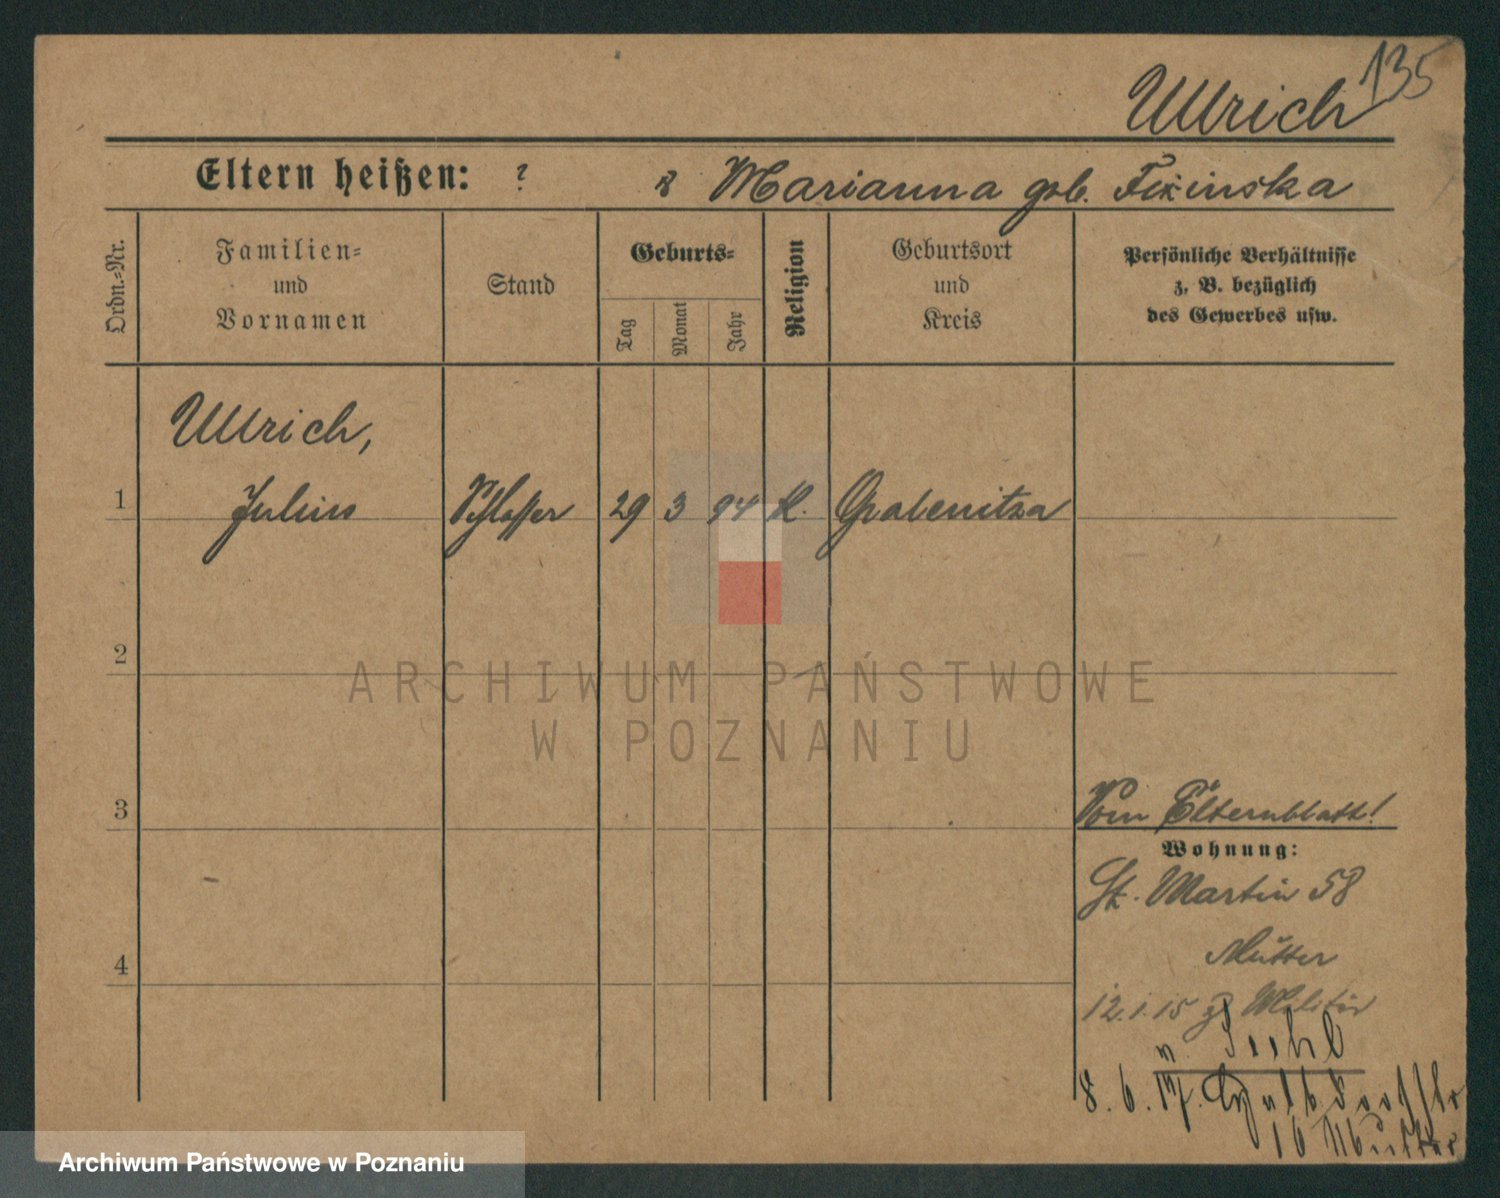 135
Ullrich
Eltern heißen: ? u Marianna geb. Fixinska
Ordn.-Nr.
Familien-
und
Vornamen
Stand
Geburts-
Tag
Monat
Jahr
Religion
Geburtsort
und
Kreis
Persönliche Verhältnisse
z. B. bezüglich
des Gewerbes usw.
Ullrich,
1 Julius Schlosser 29 3 94 k. Grabenitza
2
ARCHIWUM PAŃSTWOWE
W POZNANIU
3
Vom Elternblatt!
Wohnung:
St. Martin 58
4
Mutter
12.1.15 z Militär
n.
8.6.17.
16 Mutter
Archiwum Państwowe w Poznaniu